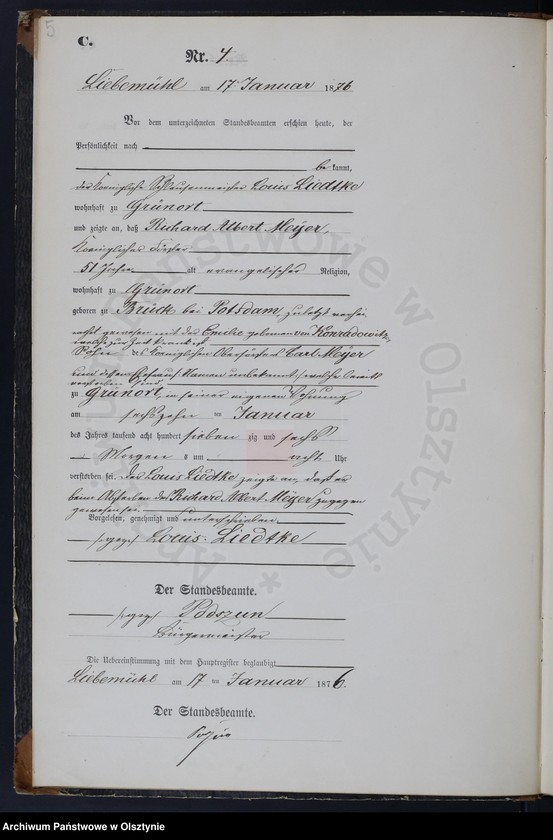 5
C.
Nr. 4
Liebemühl am 17 Januar 1876
Vor dem unterzeichneten Standesbeamten erschien heute, der
Persönlichkeit nach
be kannt,
der Koenigliche Schleusenmeister Louis Liedtke
wohnhaft zu Grünort
und zeigte an, daß Richard Albert Meyer,
Koeniglicher Förster
51 Jahre alt evangelischer Religion,
wohnhaft zu Grünort
geboren zu Brück bei Potsdam, zuletzt verhei
rathet gewesen mit der Emilie geborenen von Konradowitz,
Sohn des Koeniglichen Oberförsters Carl Meyer
und dessen Ehefrau Namen unbekannt, welche bereits
verstorben sind
zu Grünort, in seiner eigenen Wohnung
am sechszehn ten Januar
des Jahres tausend acht hundert sieben zig und sechs
Morgens um acht Uhr
verstorben sei. Der Louis Liedtke zeigte an, dass er
beim Absterben des Richard Albert Meyer zugegen
gewesen sei.
Vorgelesen, genehmigt und unterschrieben
gezeichnet Louis Liedtke
Der Standesbeamte.
Podszun
Bürgermeister
Die Uebereinstimmung mit dem Hauptregister beglaubigt
Liebemühl am 17 ten Januar 1876.
Der Standesbeamte.
Archiwum Państwowe w Olsztynie
Archiwum Państwowe w Olsztynie